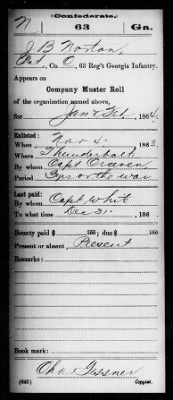 Confederate.
N 63 Ga.
J B Norton
Pvt, Co. O, 63 Reg't Georgia Infantry.
Appears on
Company Muster Roll
of the organization named above,
for Jan & Feb, 1864.
Enlisted:
When Nov 4, 1863.
Where Thunderbolt
By whom Capt Craven
Period 3 yrs or the war
Last paid:
By whom Capt Whit
To what time Dec 31, 186
Bounty paid $ 100; due $ 100
Present or absent, Present
Remarks:
Book mark:
Cha Gessner
(642) Copyist.